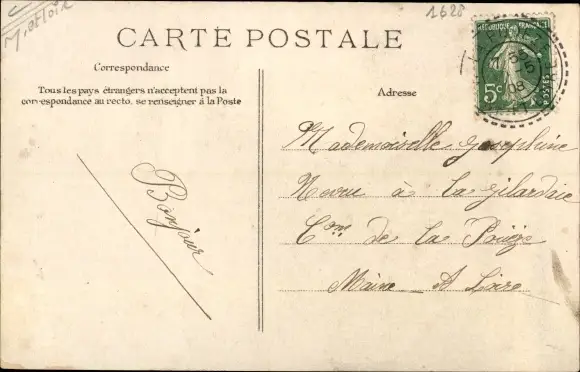 M. et Loir
1628
CARTE POSTALE
Correspondance
Tous les pays étrangers n'acceptent pas la
correspondance au recto, se renseigner à la Poste
Adresse
REPUBLIQUE FRANÇAISE
5c
POSTES
08
Bonjour
Mademoiselle Josephine
à la Gilardrie
Cne de la
Maine - & Loire